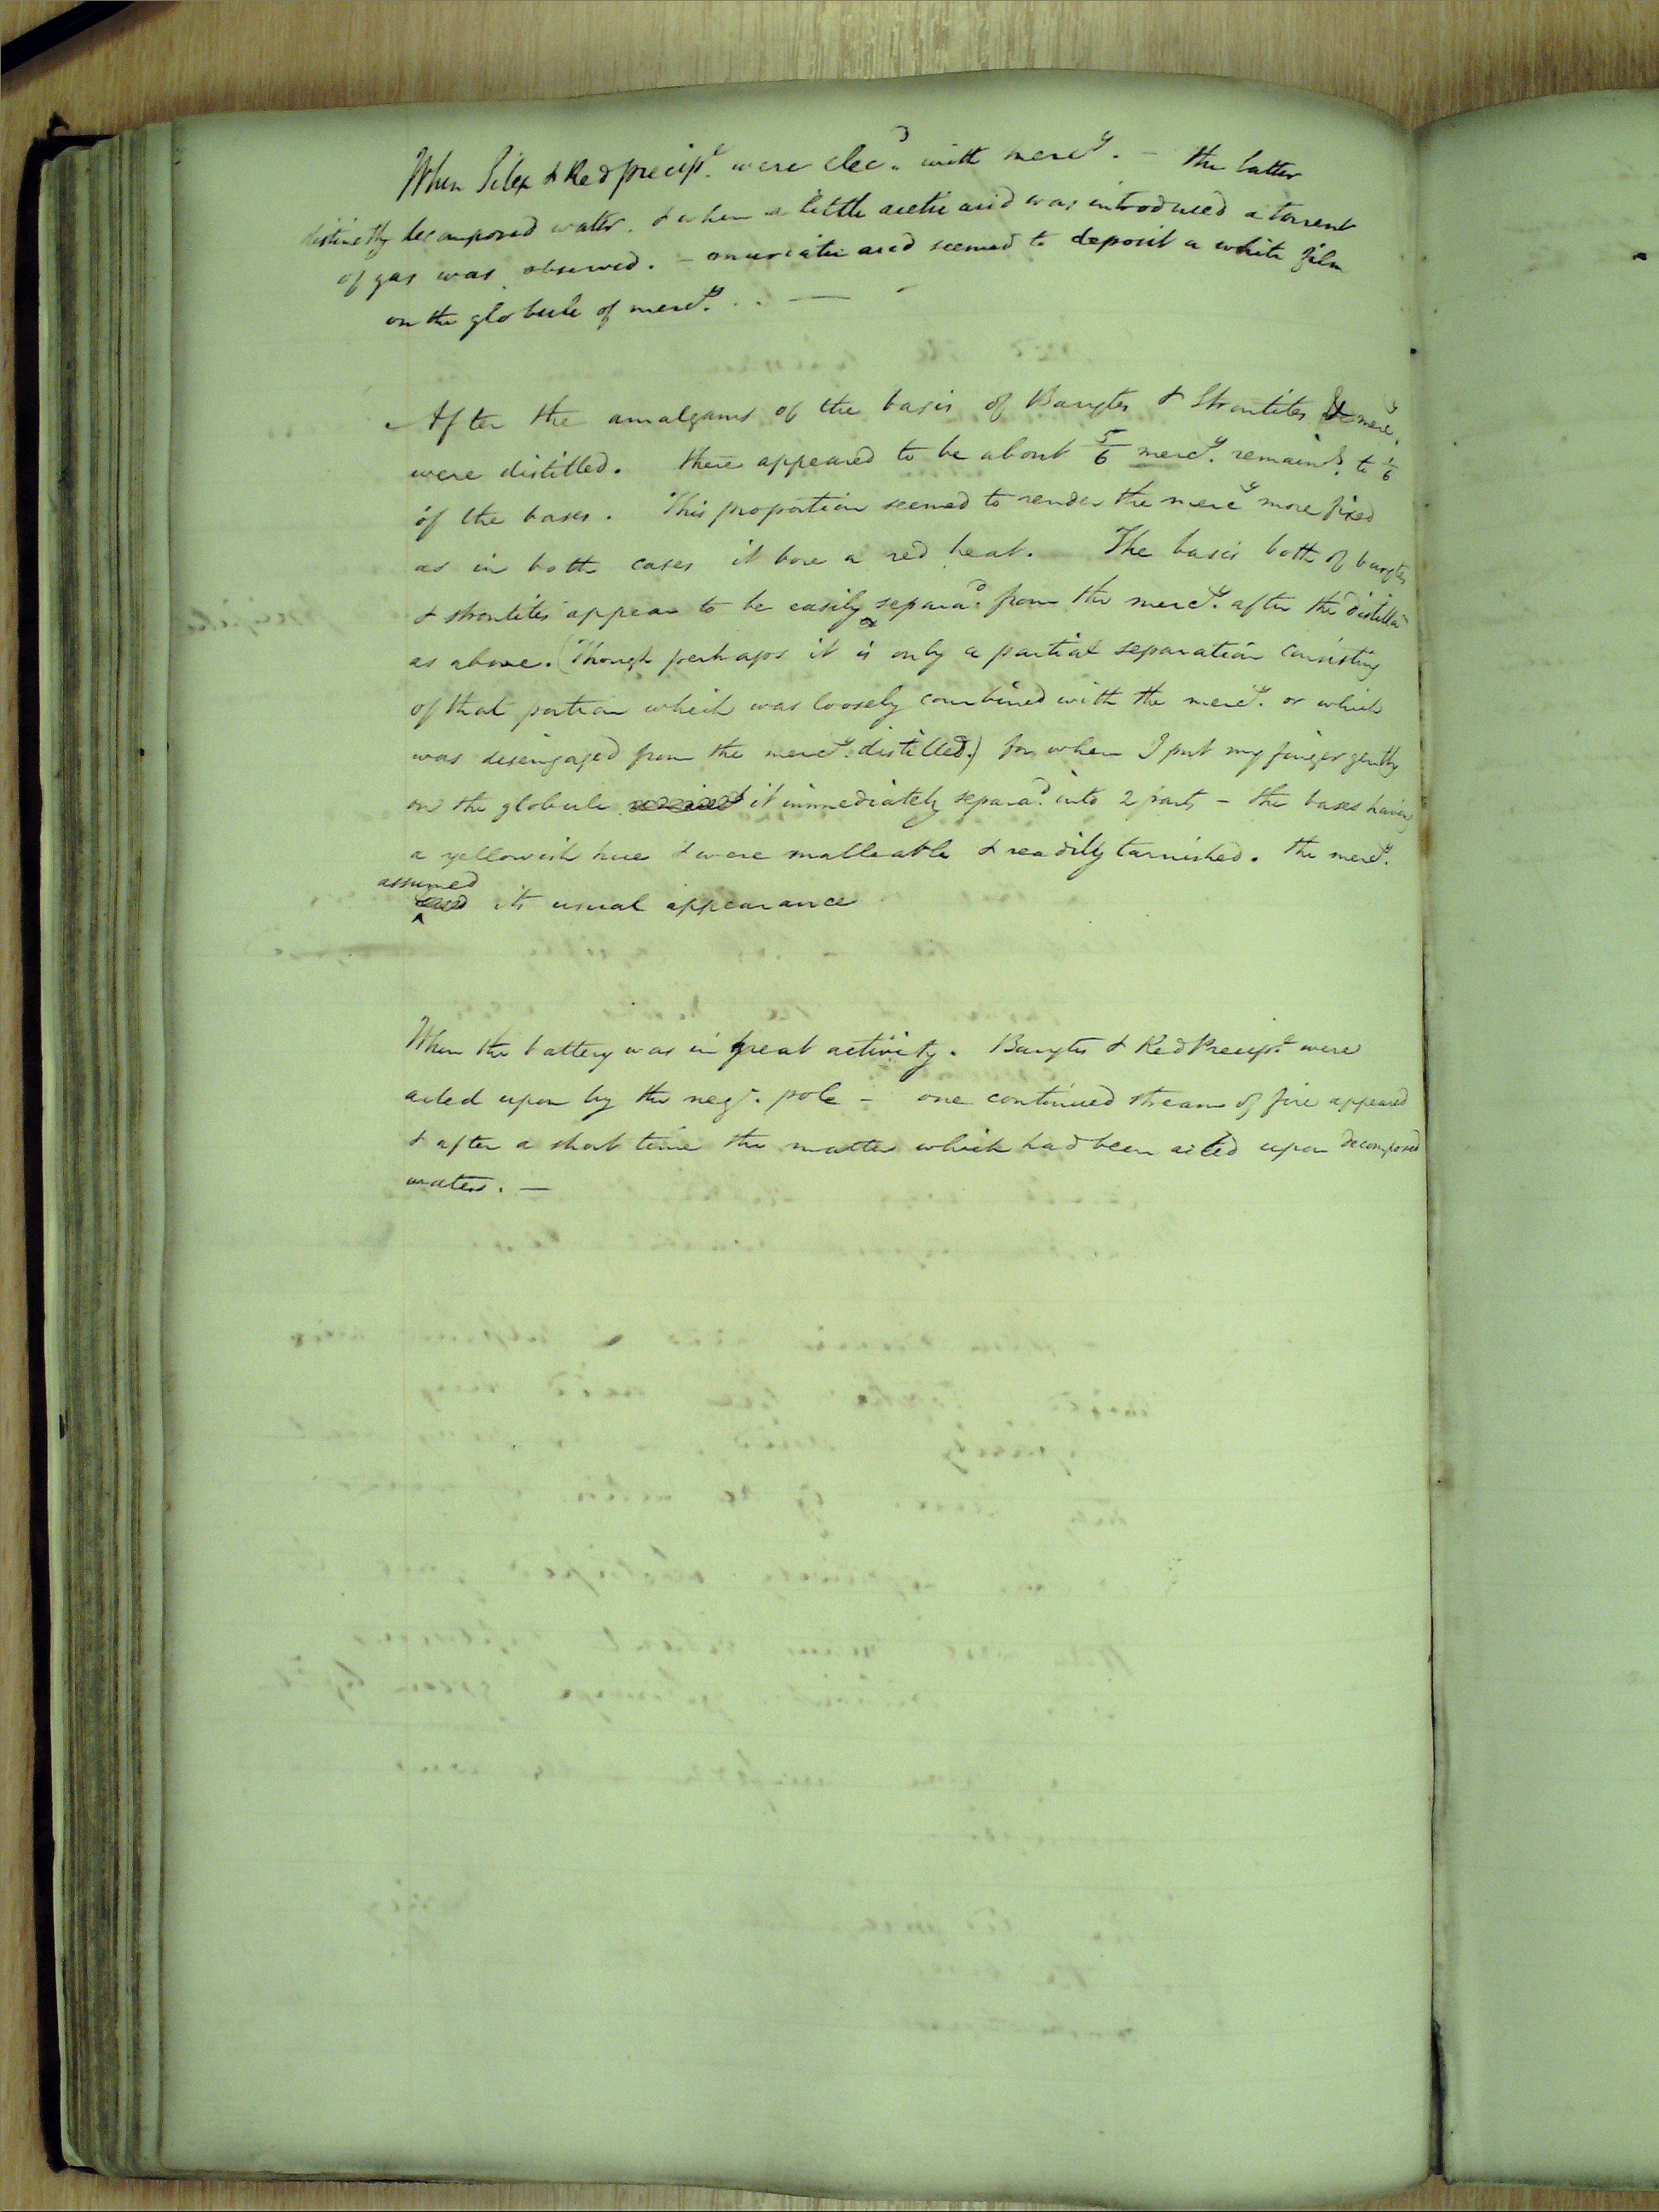 When Silex & Red precipt. were elecd. with mercy. — the latter
distinctly decomposed water. & when a little acetic acid was introduced a torrent
of gas was observed. — muriatic acid seemed to deposit a white film
on the globule of mercy. . —
After the amalgams of the basis of Barytes & Strontites & mercy.
were distilled. there appeared to be about 5/6 mercy. remaing. to 1/6
of the bases. This proportion seemed to render the mercy more fixed
as in both cases it bore a red heat. The basis both of barytes
& strontites appear to be easily separad. from the mercy. after the distilla-
as above. (Though perhaps it is only a partial separation consisting
of that portion which was loosely combined with the mercy. or which
was disengaged from the mercy. distilled.) for when I put my finger gently
on the globule it immediately separad. into 2 parts — the bases having
a yellowish hue & were malleable & readily tarnished. the mercy.
assumed
its usual appearance
When the battery was in great activity. Barytes & Red Precipt. were
acted upon by the neg. pole — one continued stream of fire appeared
& after a short time the matter which had been acted upon decomposed
water. —